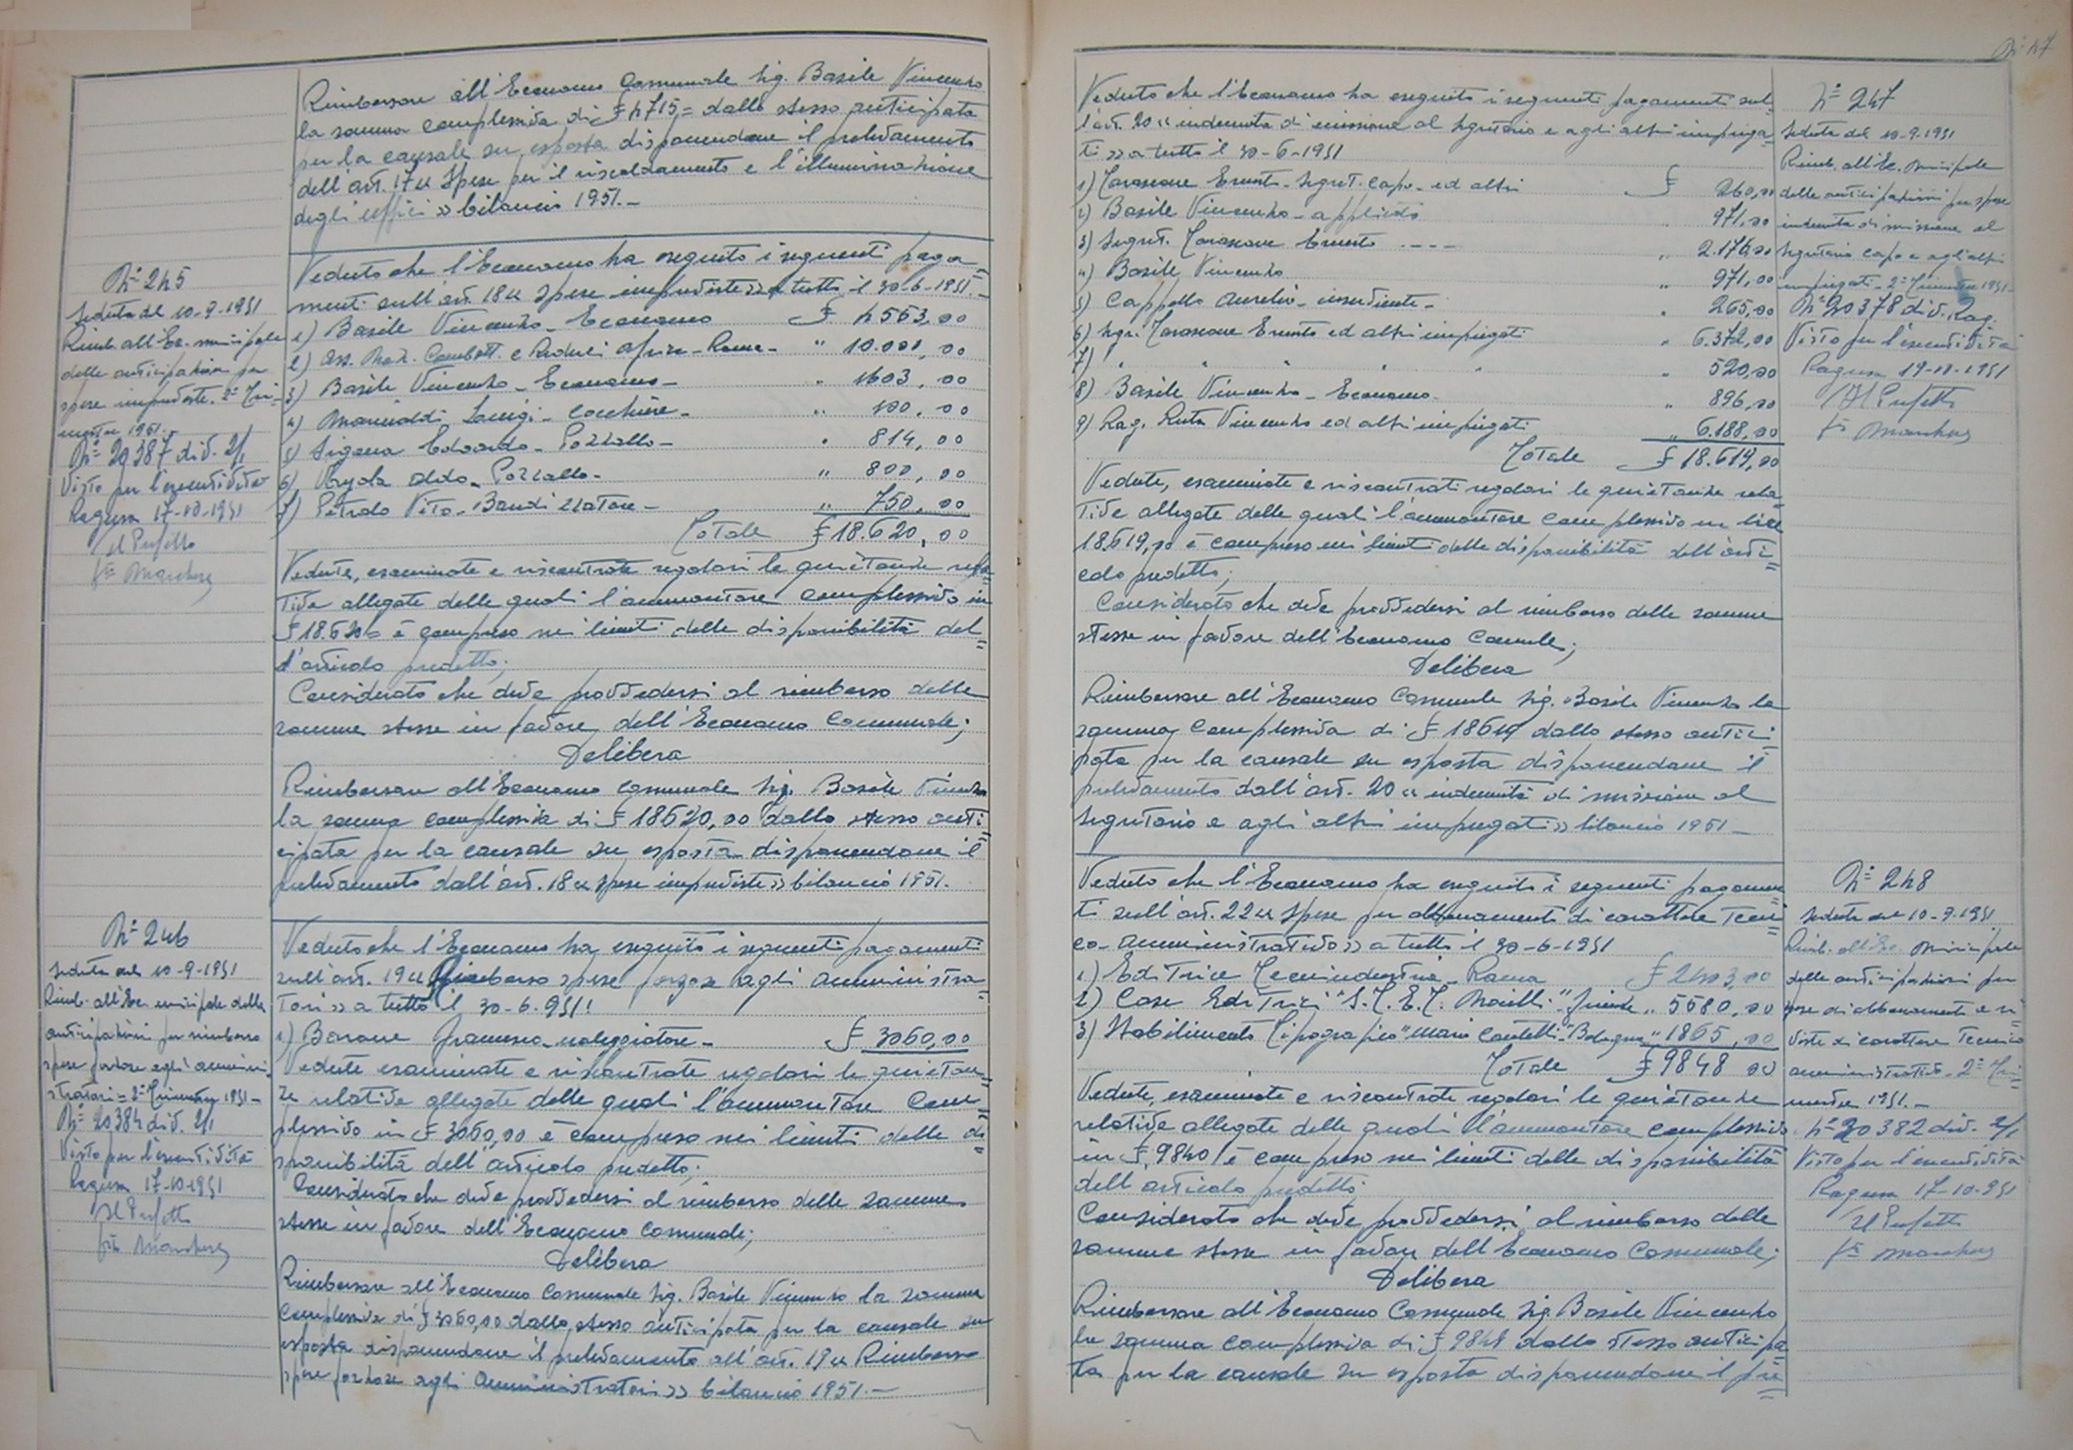 Rimborsare all'Economo Comunale Sig. Basile Vincenzo
la somma complessiva di £ 4715,= dallo stesso anticipata
per la causale su esposta disponendone il prelevamento
dell'art. 17 « Spese per il riscaldamento e l'illuminazione
degli uffici » bilancio 1951.-
N° 245
Seduta del 10-9-1951
Rimb. all'Ec. municipale
delle anticipazioni per
spese impreviste. 2° Tri-
mestre 1951.-
N° 20387 div. 2/1
Visto per l'esecutività
Ragusa 17-10-1951
Il Prefetto
f.to Marchese
Veduto che l'Economo ha eseguito i seguenti paga=
menti sull'art. 18 « Spese impreviste » a tutto il 30-6-1951.-
1) Basile Vincenzo - Economo £ 4563,00
2) Ass. Naz. Combatt. e Reduci Africa - Roma - " 10.000,00
3) Basile Vincenzo - Economo - " 1603,00
4) Luigi - Cocchiere - " 100,00
5) Edoardo - Pozzallo - " 814,00
6) Aldo - Pozzallo - " 800,00
7) Vito - Bandizzatore - " 750,00
Totale £ 18.620,00
Vedute, esaminate e riscontrate regolari le quietanze rela=
tive allegate delle quali l'ammontare complessivo in
£ 18.620= è compreso nei limiti delle disponibilità del=
l'articolo predetto;
Considerato che deve provvedersi al rimborso delle
somme stesse in favore dell'Economo Comunale;
Delibera
Rimborsare all'Economo Comunale Sig. Basile Vincenzo
la somma complessiva di £ 18620,00 dallo stesso anti=
cipata per la causale su esposta disponendone il
prelevamento dall'art. 18 « Spese impreviste » bilancio 1951.
N° 246
Seduta del 10-9-1951
Rimb. all'Ec. municipale delle
anticipazioni per rimborso
spese forzose agli ammini=
stratori = 2° Trimestre 1951-
N° 20384 div. 2/1
Visto per l'esecutività
Ragusa 17-10-1951
Il Prefetto
f.to Marchese
Veduto che l'Economo ha eseguito i seguenti pagamenti
sull'art. 19 « Rimborso spese forzose agli amministra=
tori » a tutto il 30-6-951!
1) Barone Francesco - noleggiatore - £ 3060,00
Vedute esaminate e riscontrate regolari le quietan=
ze relative allegate delle quali l'ammontare com=
plessivo in £ 3060,00 è compreso nei limiti delle di=
sponibilità dell'articolo predetto;
Considerato che deve provvedersi al rimborso delle somme
stesse in favore dell'Economo Comunale;
Delibera
Rimborsare all'Economo Comunale Sig. Basile Vincenzo la somma
complessiva di £ 3060,00 dallo stesso anticipata per la causale su
esposta disponendone il prelevamento all'art. 19 « Rimborso
spese forzose agli Amministratori » bilancio 1951.-
N° 47
Veduto che l'Economo ha eseguito i seguenti pagamenti sul=
l'art. 20 « indennità di missione al Segretario e agli altri impiega=
ti » a tutto il 30-6-1951
1) Ernesto - Segret. Capo - ed altri £ 260,00
2) Basile Vincenzo - applicato " 971,00
3) Segret. Ernesto - - - - " 2.176,00
4) Basile Vincenzo " 971,00
5) Cappello Aurelio - inserviente - " 265,00
6) Segr. Ernesto ed altri impiegati " 6.372,00
7) " " " " " 520,00
8) Basile Vincenzo - Economo - " 896,00
9) Rag. Ruta Vincenzo ed altri impiegati " 6.188,00
Totale £ 18.619,00
Vedute, esaminate e riscontrati regolari le quietanze rela=
tive allegate delle quali l'ammontare complessivo in lire
18.619,00 è compreso nei limiti delle disponibilità dell'arti=
colo predetto;
Considerato che deve provvedersi al rimborso delle somme
stesse in favore dell'Economo Comunale;
Delibera
Rimborsare all'Economo Comunale Sig. Basile Vincenzo la
somma complessiva di £ 18619 dallo stesso antici=
pata per la causale su esposta disponendone il
prelevamento dall'art. 20 « indennità di missione al
Segretario e agli altri impiegati » bilancio 1951-
N° 247
Seduta del 10-9-1951
Rimb. all'Ec. Municipale
delle anticipazioni per spese
indennità di missione al
Segretario capo e agli altri
impiegati - 2° Trimestre 1951-
N° 20378 div. Rag.
Visto per l'esecutività
Ragusa 19-10-1951
Il Prefetto
f.to Marchese
Veduto che l'Economo ha eseguito i seguenti pagamen=
ti sull'art. 22 « Spese per abbonamenti di carattere Tecni
co-amministrativo » a tutto il 30-6-1951
1) Editrice Roma £ 2403,00
2) Case Editrici "S.T.E.T. " " 5580,00
3) Stabilimento Tipografico "Mario Bologna " 1865,00
Totale £ 9848 00
Vedute, esaminate e riscontrate regolari le quietanze
relative allegate delle quali l'ammontare complessivo
in £ 9840 è compreso nei limiti delle disponibilità
dell'articolo predetto;
Considerato che deve provvedersi al rimborso delle
somme stesse in favore dell'Economo Comunale;
Delibera
Rimborsare all'Economo Comunale Sig. Basile Vincenzo
la somma complessiva di £ 9848 dallo stesso anticipa=
ta per la causale su esposta disponendone il pre=
N° 248
Seduta del 10-9-1951
Rimb. all'Ec. Municipale
delle anticipazioni per
spese di abbonamenti e ri
viste di carattere Tecnico
amministrativo - 2° Tri=
mestre 1951.-
N° 20382 div. 2/1
Visto per l'esecutività
Ragusa 17-10-951
Il Prefetto
f.to Marchese